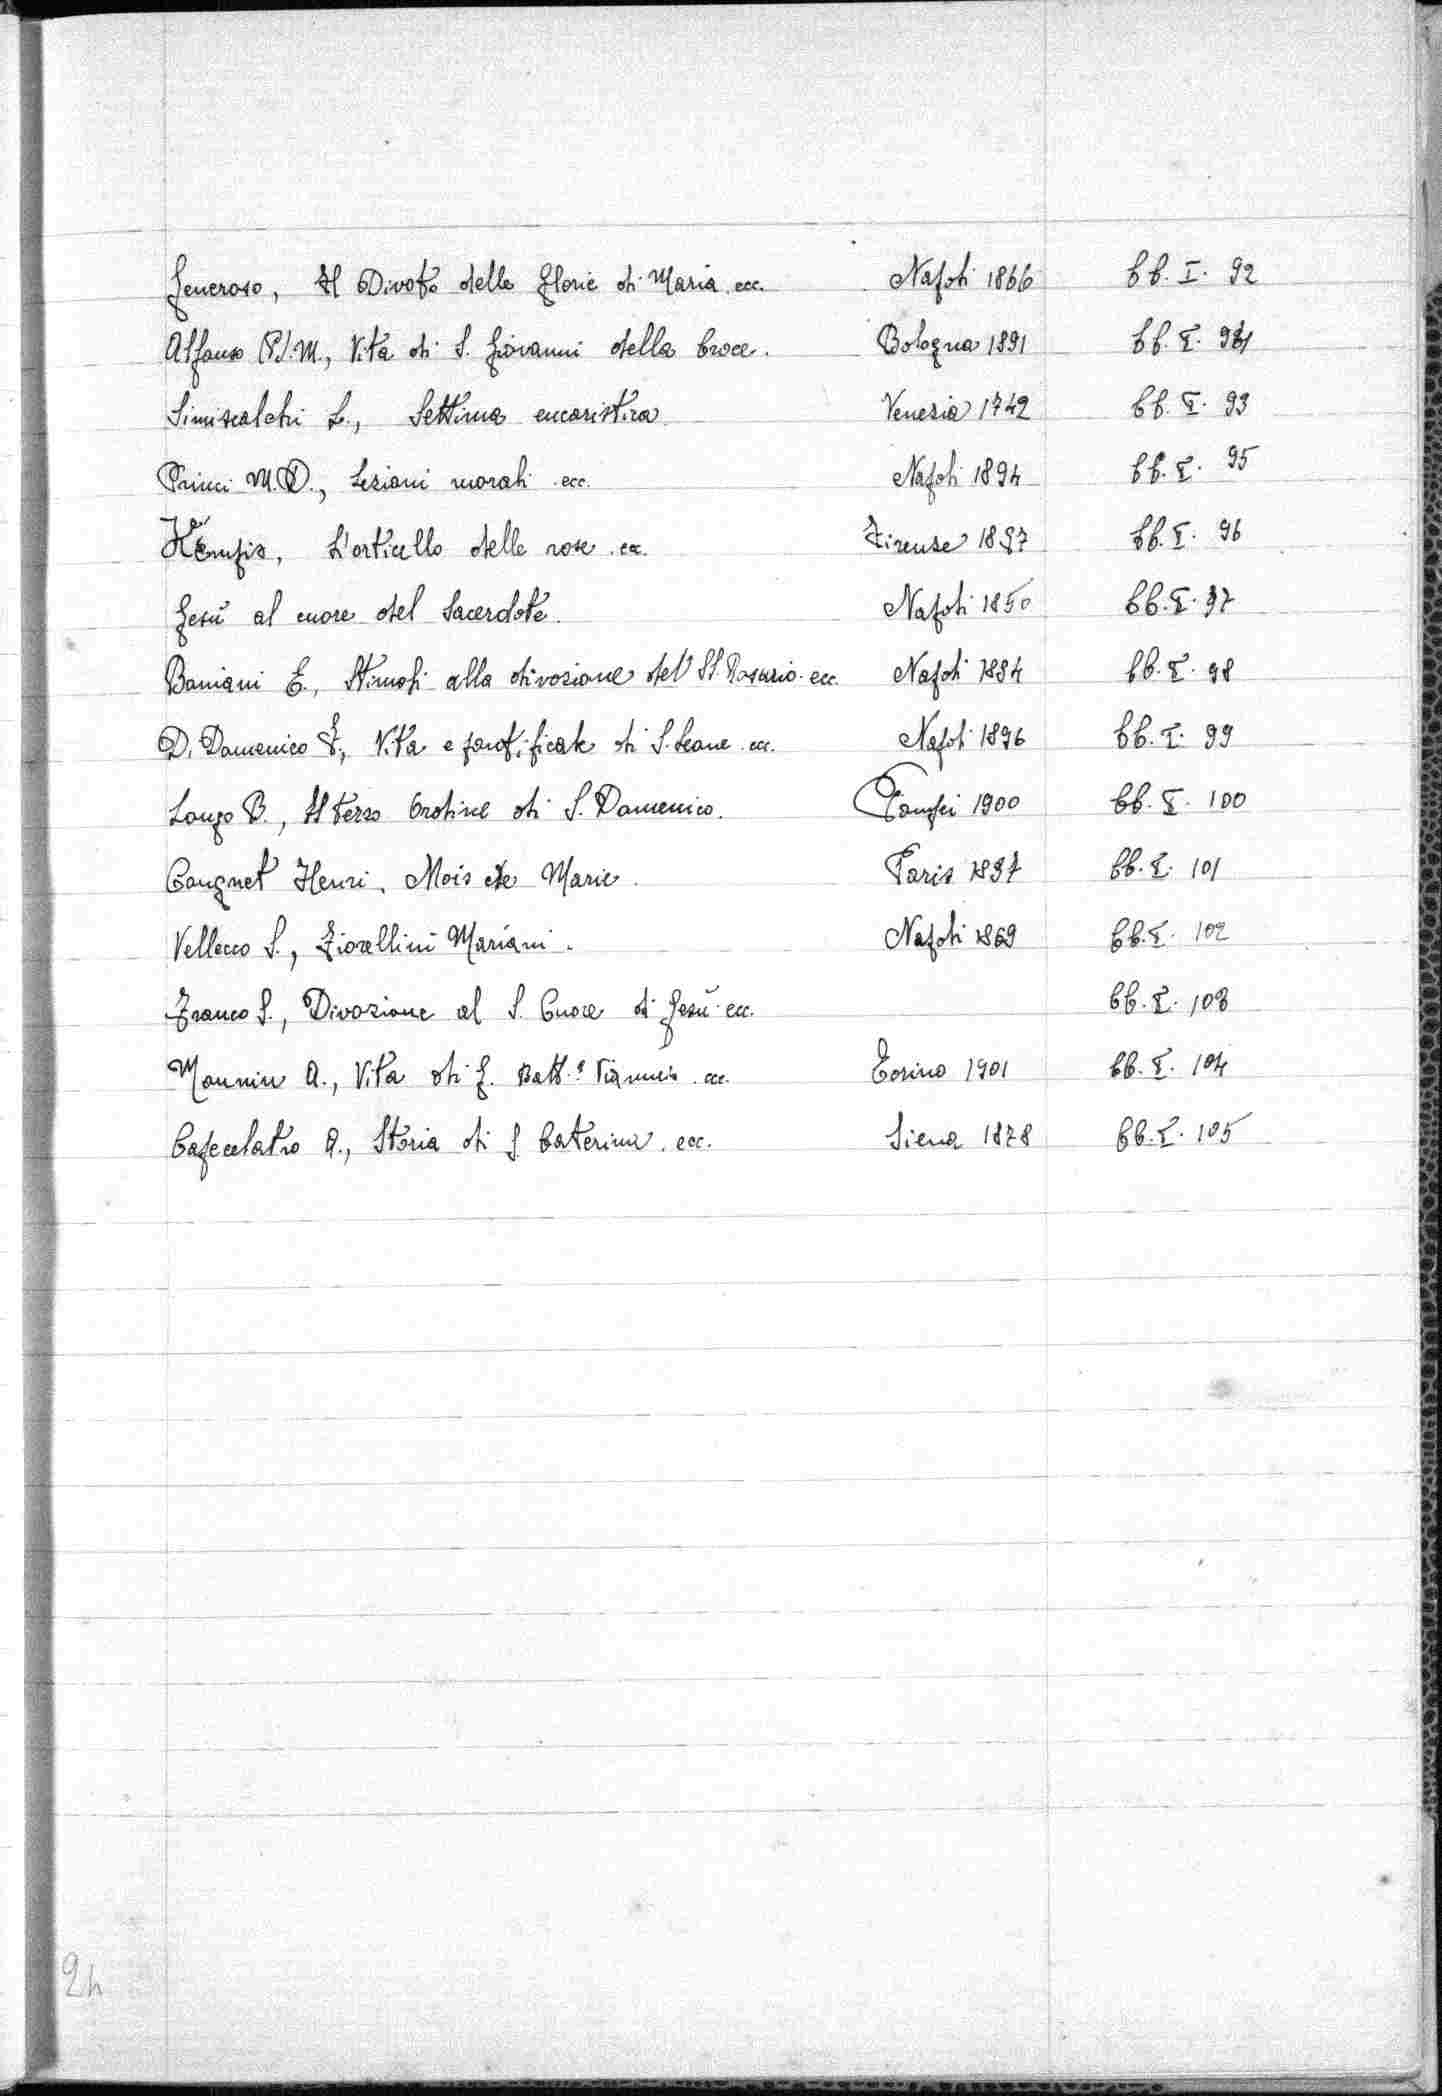 Generoso, Il Divoto delle Glorie di Maria ecc. Napoli 1866 bb. I. 92
Alfonso P.I.M., Vita di S. Giovanni della Croce. Bologna 1891 bb. I. 94
Siniscalchi L., Settima eucaristica Venezia 1742 bb. I. 93
Princi M.D., Lezioni morali ecc. Napoli 1894 bb. I. 95
Kempis, L'orticello delle rose ecc. Firenze bb. I. 96
Gesù al cuore del Sacerdote. Napoli 1850 bb. I. 97
E., Stimoli alla divozione del SS. Rosario ecc. Napoli bb. I. 98
Di Domenico F., Vita e pontificato di S. Leone ecc. Napoli 1896 bb. I. 99
Longo B., Il terzo Ordine di S. Domenico. Pompei 1900 bb. I. 100
Congnet Henri, Mois de Marie. Paris 1837 bb. I. 101
Vellecco S., Fiorellini Mariani. Napoli 1869 bb. I. 102
Franco S., Divozione al S. Cuore di Gesù ecc. bb. I. 103
Monnin A., Vita di G. Batt.a Vianneis ecc. Torino 1901 bb. I. 104
Capecelatro A., Storia di S. Caterina ecc. Siena 1878 bb. I. 105
24